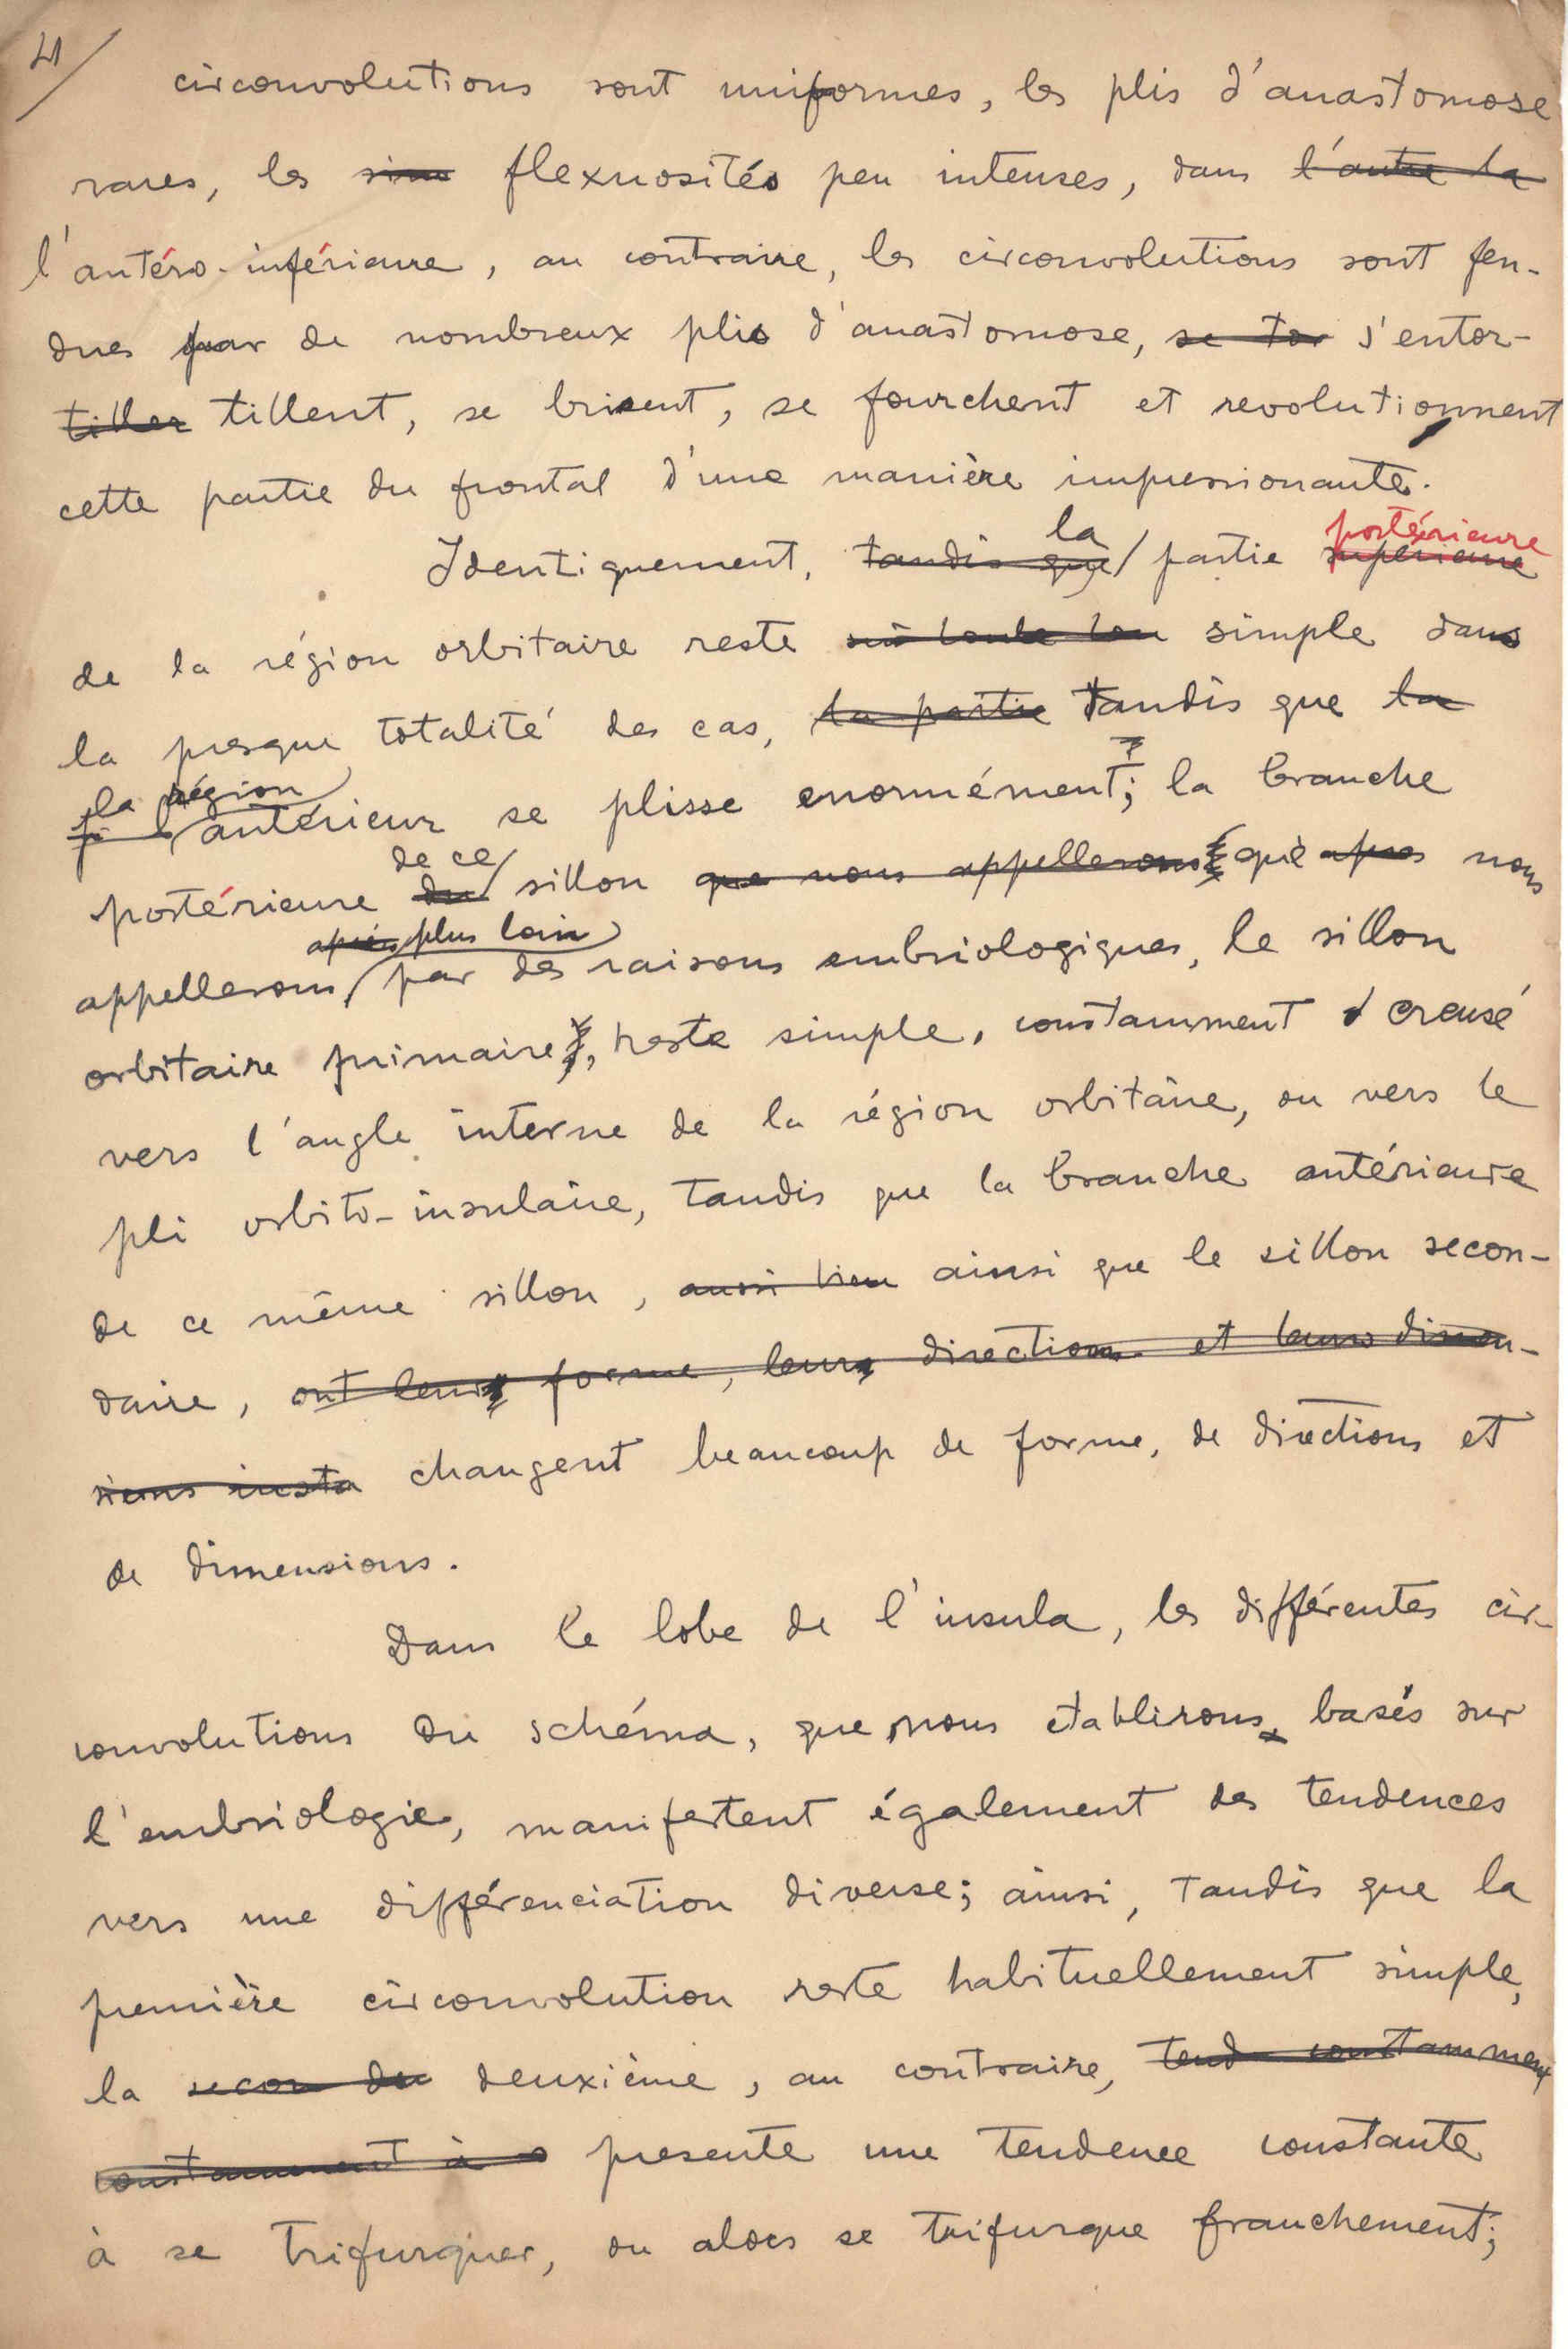 4/
circonvolutions sont uniformes, les plis d'anastomose
rares, les flexuosités peu intenses, dans l'autre la
l'antéro-inférieure, au contraire, les circonvolutions sont fen-
dues par de nombreux plis d'anastomose, se tor s'entor-
tiller tillent, se brisent, se fourchent et revolutionnent
cette partie du frontal d'une manière impressionante.
Identiquement, tandis que la partie supérieure postérieure
de la région orbitaire reste simple dans
la presque totalité des cas, la partie tandis que la
la région antérieur se plisse enormément; la branche
postérieure du de ce sillon que nous appellerons que apres nous
appellerons après plus loin par des raisons embriologiques, le sillon
orbitaire primaire, reste simple, constamment creusé
vers l'angle interne de la région orbitaire, ou vers le
pli orbito-insulaire, tandis que la branche antérieure
de ce même sillon, aussi bien ainsi que le sillon secon-
daire, ont leurs forme, leurs directions et leurs dimen-
sions insta changent beaucoup de forme, de directions et
de dimensions.
Dans le lobe de l'insula, les différentes cir-
convolutions du schéma, que nous établirons, basés sur
l'embriologie, manifestent également des tendences
vers une différenciation diverse; ainsi, tandis que la
première circonvolution reste habituellement simple,
la secon de deuxième, au contraire, tend constamment
constamment à presente une tendence constante
à se trifurquer, ou alors se trifurque franchement;